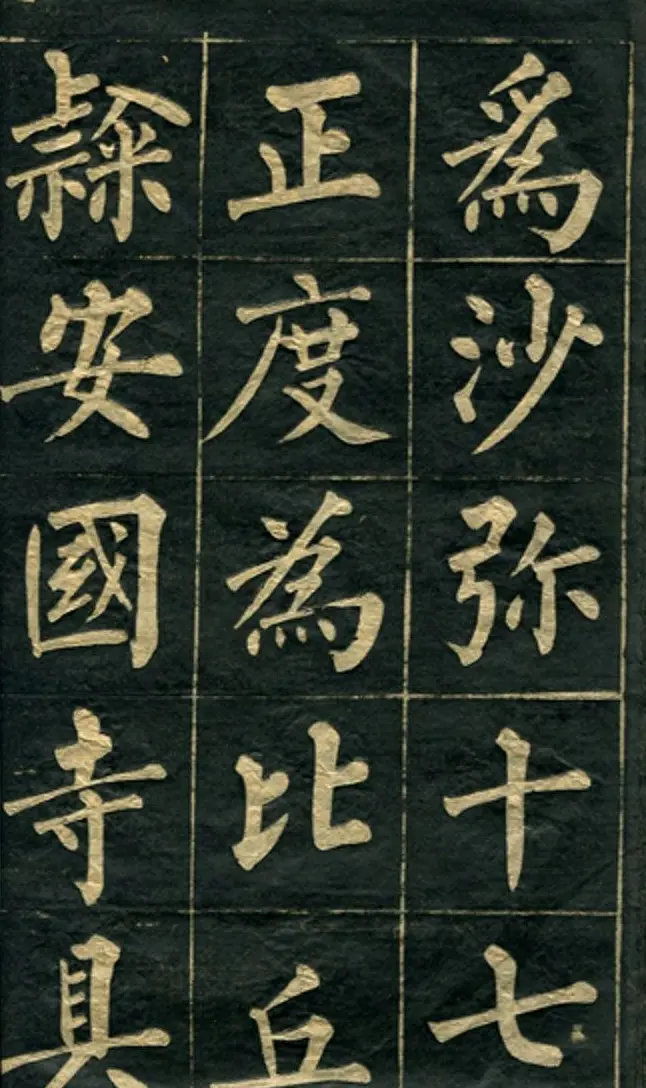 爲沙弥十七
正度為比丘
隸安國寺具